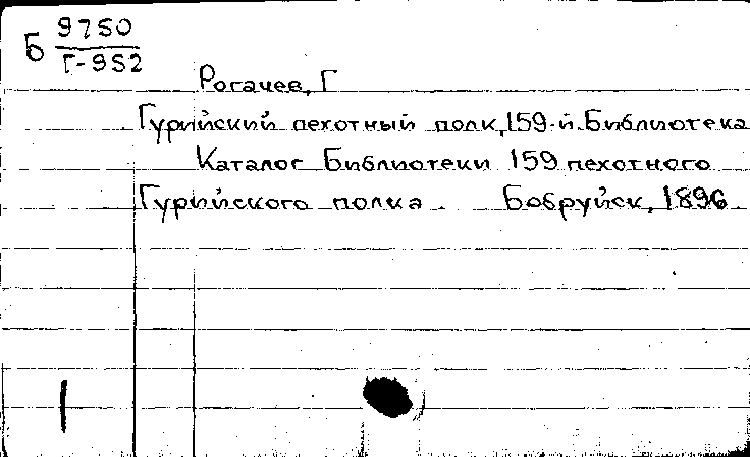 Б 9750
Г-952
Рогачев, Г
Гурийский пехотный полк, 159-й. Библиотека
Каталог Библиотеки 159 пехотного
Гурийского полка Бобруйск, 1896